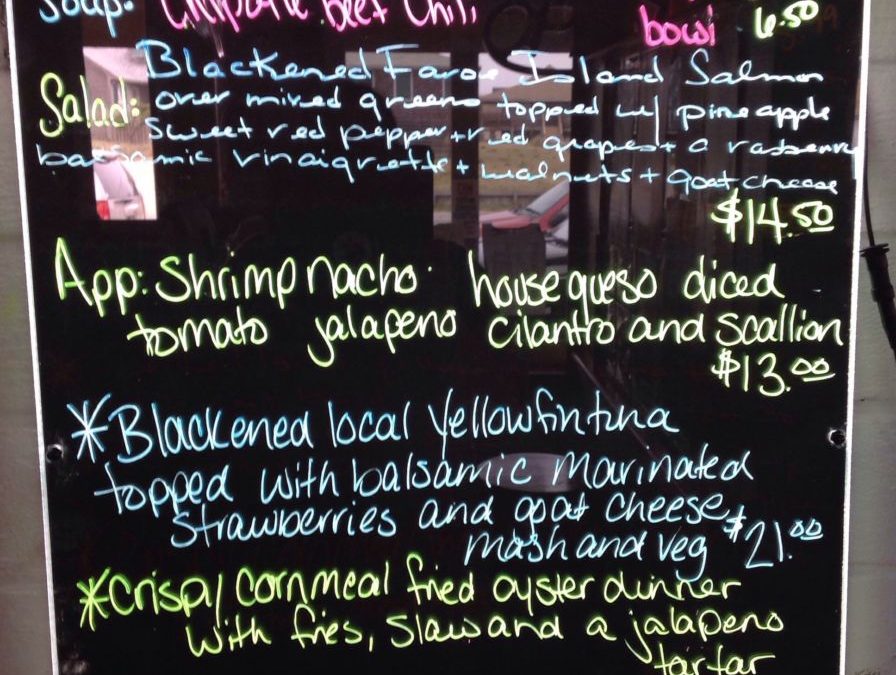 Soup: Chipotle beef Chili
bowl 6.50
Salad: Blackened Faroe Island Salmon
over mixed greens topped w/ pineapple
sweet red pepper + red grapes + a rasberry
balsamic vinaigrette + walnuts + goat cheese
$14.50
App: Shrimp nacho house queso diced
tomato jalapeno cilantro and scallion
$13.00
*Blackened local yellowfin tuna
topped with balsamic marinated
strawberries and goat cheese,
mash and veg $21.00
*Crispy cornmeal fried oyster dinner
with fries, slaw and a jalapeno
tartar